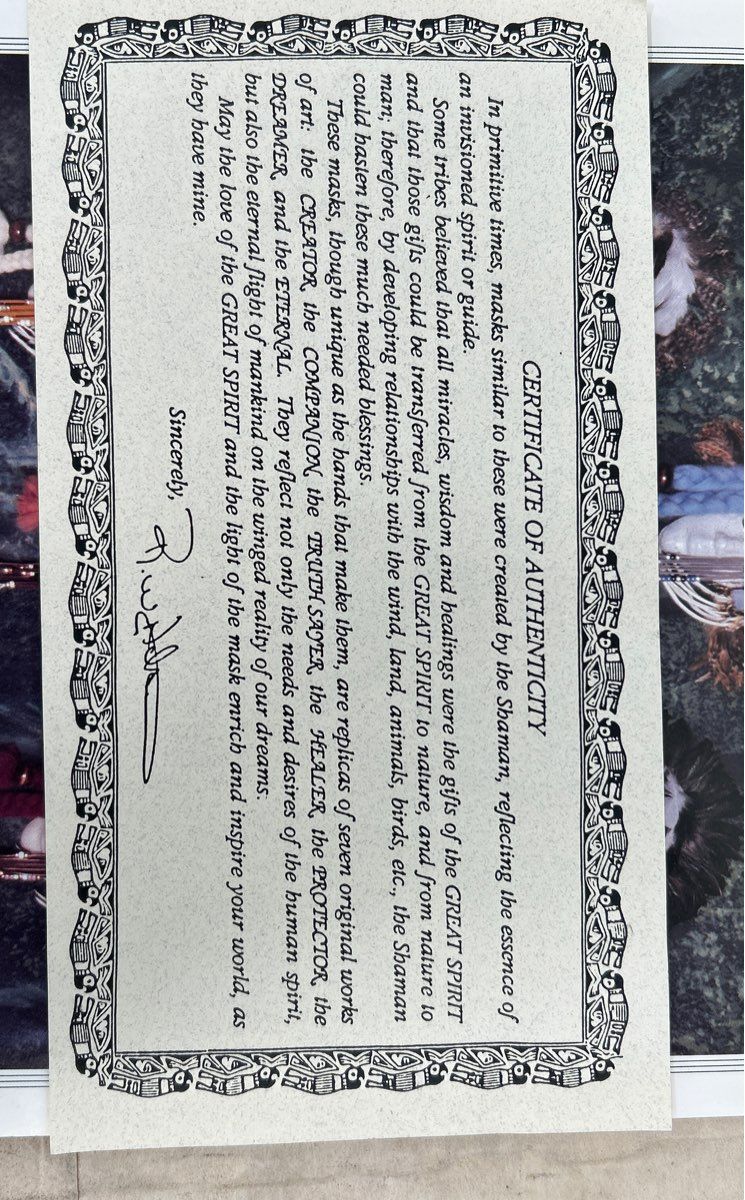 CERTIFICATE OF AUTHENTICITY
In primitive times, masks similar to these were created by the Shaman, reflecting the essence of
an invisioned spirit or guide.
Some tribes believed that all miracles, wisdom and healings were the gifts of the GREAT SPIRIT
and that those gifts could be transferred from the GREAT SPIRIT to nature, and from nature to
man; therefore, by developing relationships with the wind, land, animals, birds, etc., the Shaman
could hasten these much needed blessings.
These masks, though unique as the hands that make them, are replicas of seven original works
of art: the CREATOR, the COMPANION, the TRUTH SAYER, the HEALER, the PROTECTOR, the
DREAMER, and the ETERNAL. They reflect not only the needs and desires of the human spirit,
but also the eternal flight of mankind on the winged reality of our dreams.
May the love of the GREAT SPIRIT and the light of the mask enrich and inspire your world, as
they have mine.
Sincerely,